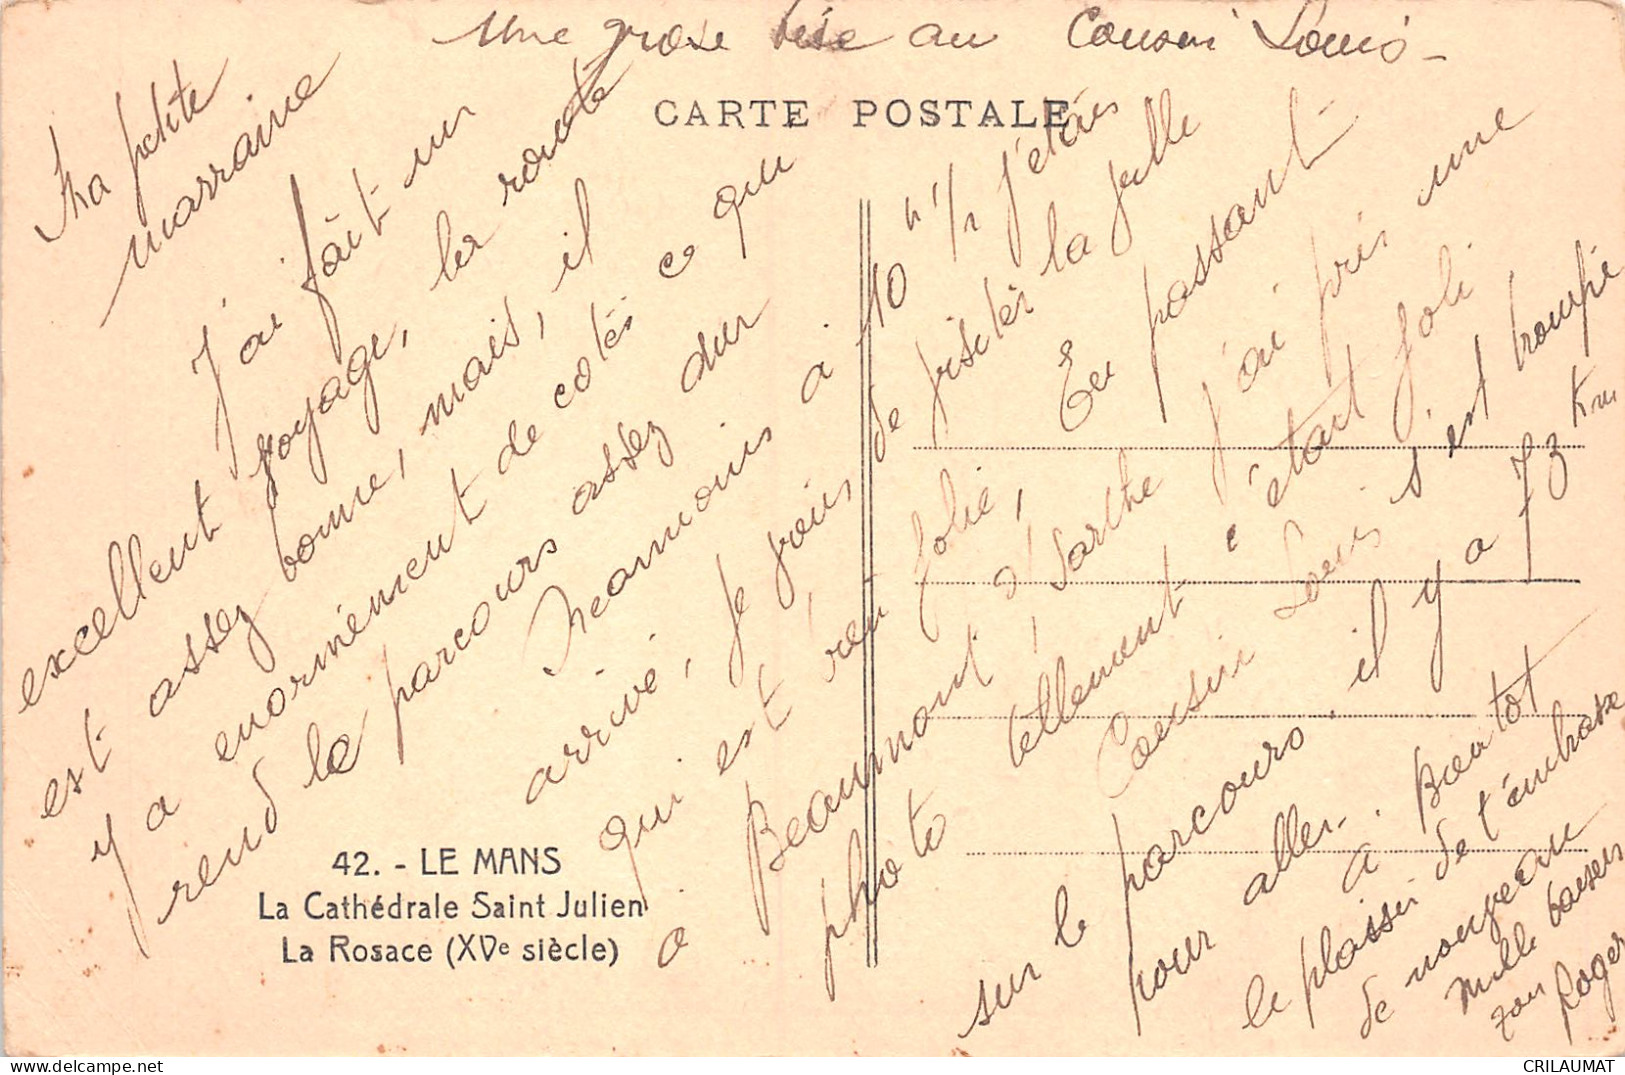 Une grosse bise au Cousin Louis -
CARTE POSTALE
Ma petite
marraine
J'ai fait un
excellent voyage, la route
est assez bonne, mais, il
y a enormément de cotés ce qui
rend le parcours assez dur
Neanmoins à 10 h 1/2 j'étais
arrivé, je viens de visiter la ville
qui est bien jolie, En passant
à Beaumont s/ Sarthe j'ai pris une
photo tellement c'était joli
Cousin Louis s'est trompé
sur le parcours, il y a 73 Km
pour aller. A Bientot
le plaisir de t'embrasse
de nouveau
Mille baisers
ton Roger
42. - LE MANS
La Cathédrale Saint Julien
La Rosace (XVe siècle)
CRILAUMAT